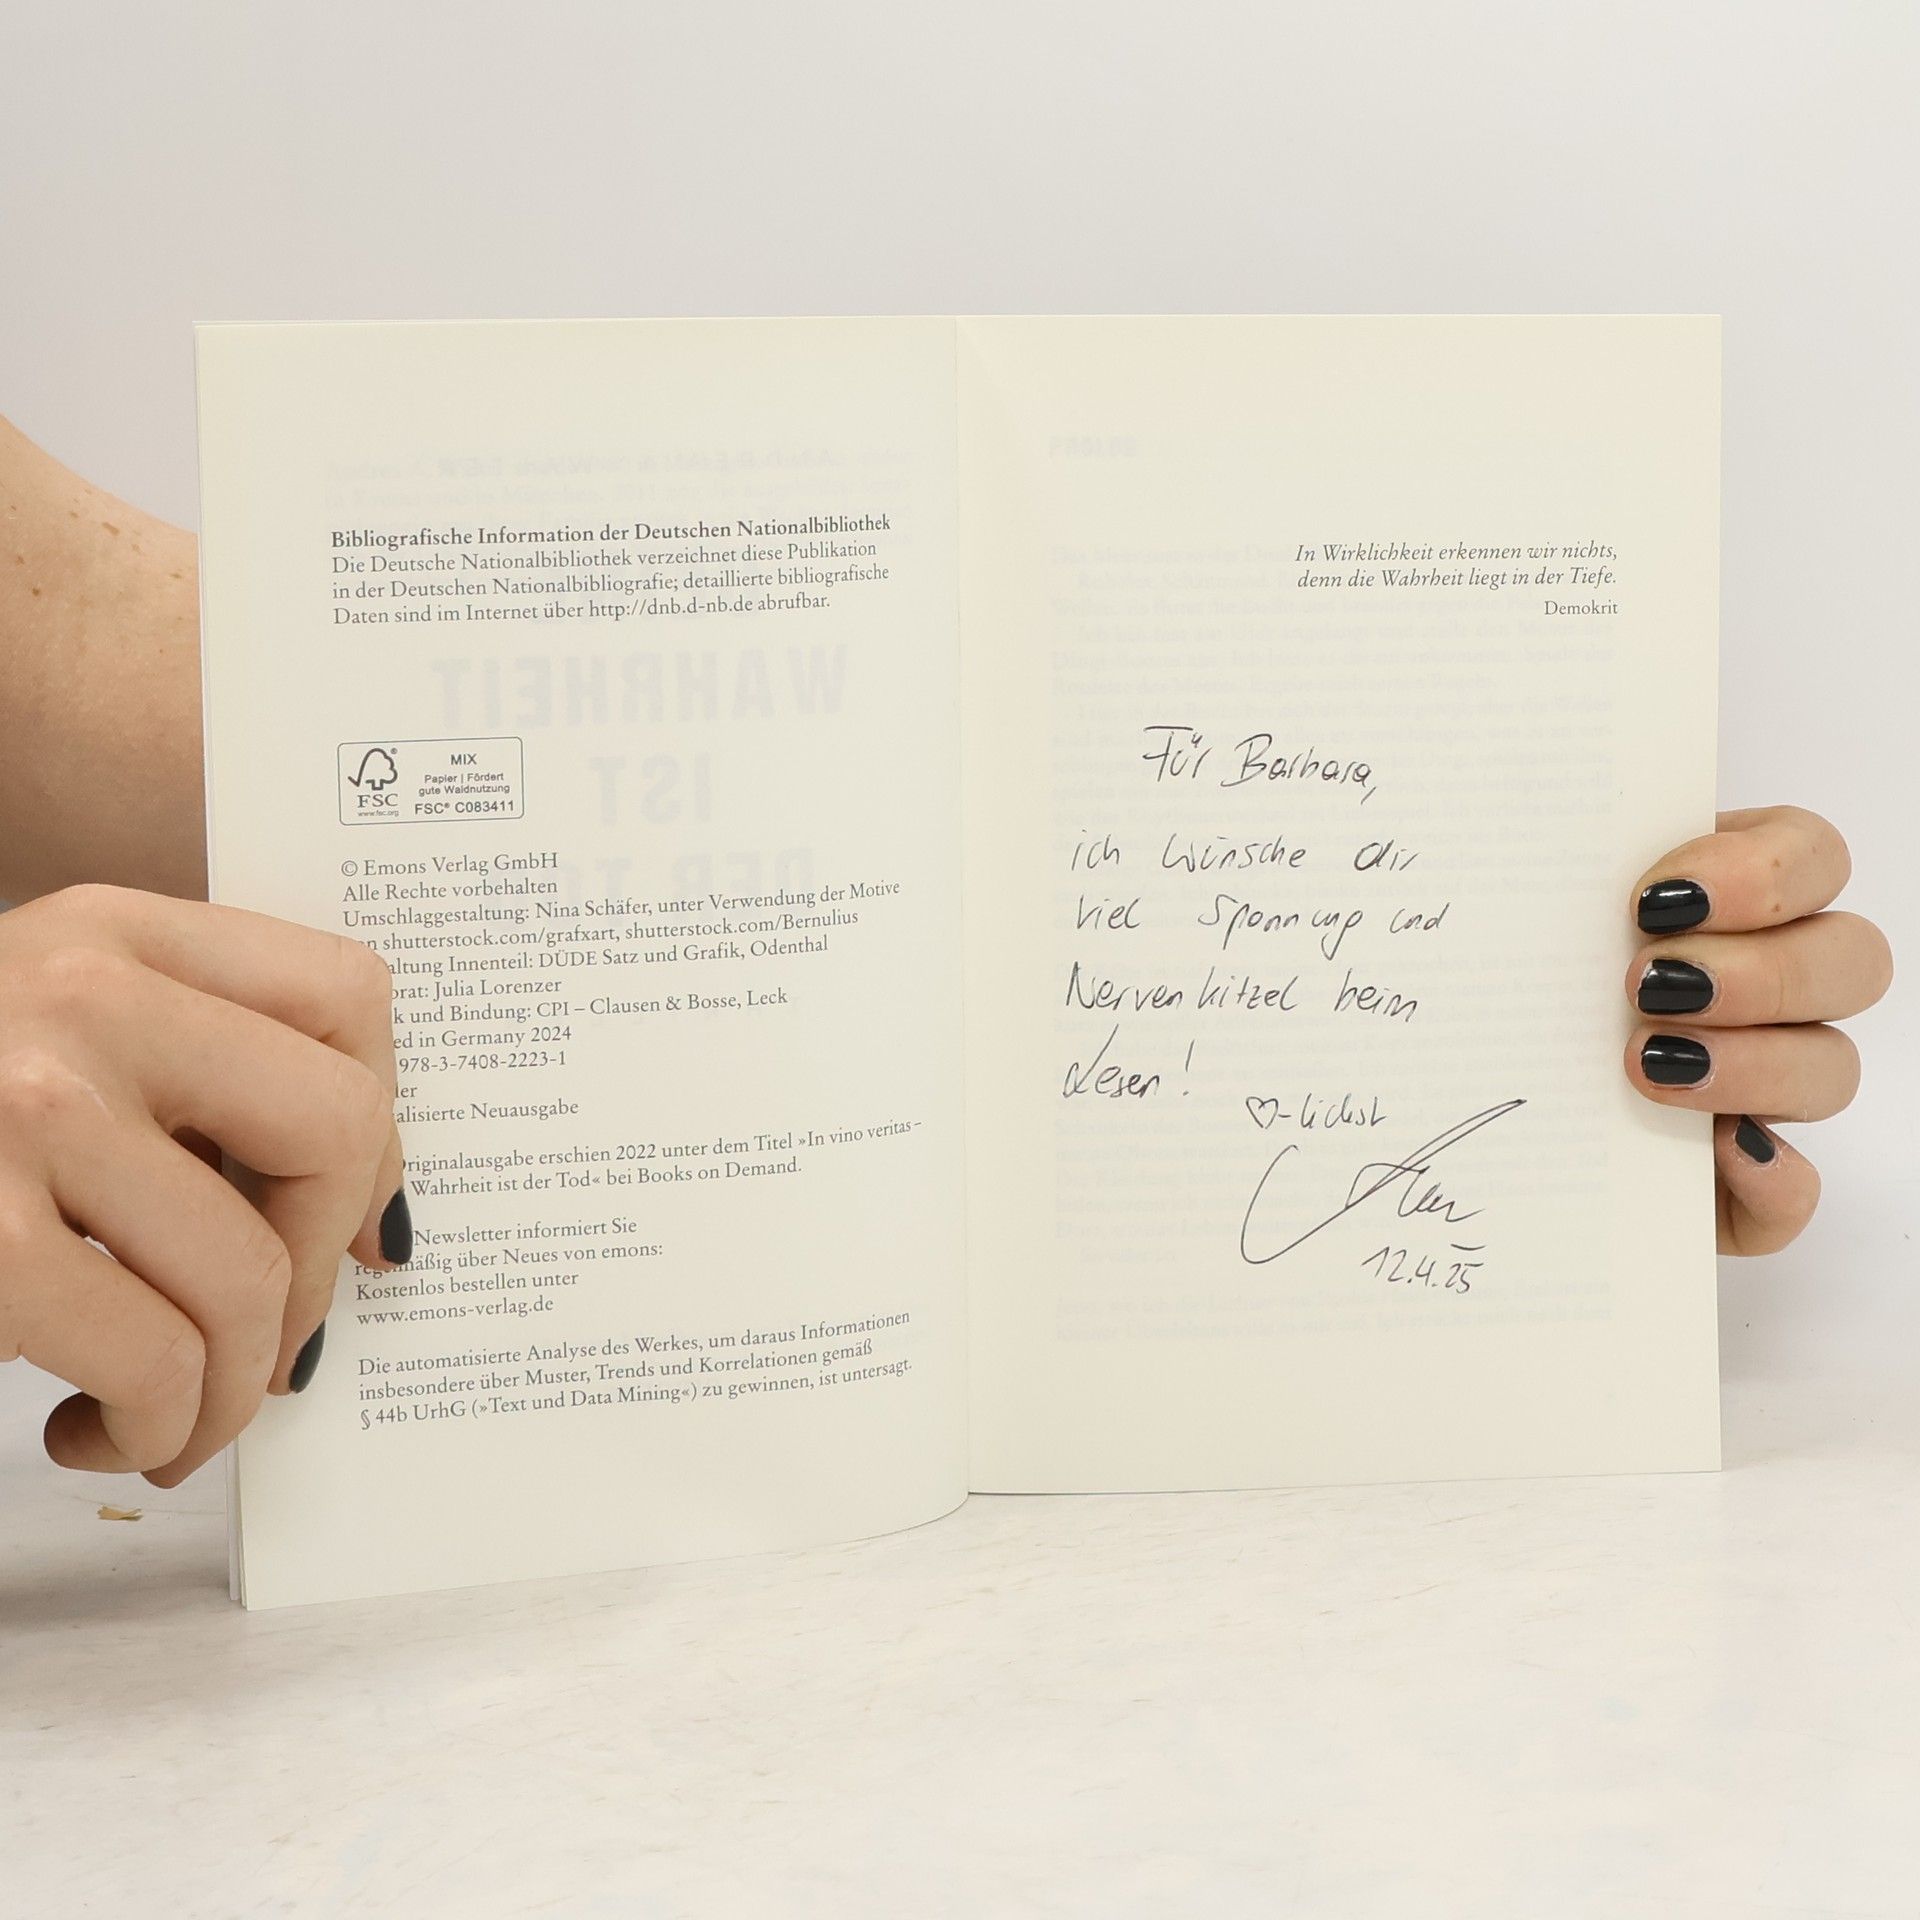 Bibliografische Information der Deutschen Nationalbibliothek
Die Deutsche Nationalbibliothek verzeichnet diese Publikation
in der Deutschen Nationalbibliografie; detaillierte bibliografische
Daten sind im Internet über http://dnb.d-nb.de abrufbar.
WAHRHEIT
IST
DER TO
FSC
www.fsc.org
MIX
Papier | Fördert
gute Waldnutzung
FSC® C083411
© Emons Verlag GmbH
Alle Rechte vorbehalten
Umschlaggestaltung: Nina Schäfer, unter Verwendung der Motive
n shutterstock.com/grafxart, shutterstock.com/Bernulius
altung Innenteil: DÜDE Satz und Grafik, Odenthal
orat: Julia Lorenzer
k und Bindung: CPI – Clausen & Bosse, Leck
ed in Germany 2024
978-3-7408-2223-1
ler
alisierte Neuausgabe
riginalausgabe erschien 2022 unter dem Titel »In vino veritas –
Wahrheit ist der Tod« bei Books on Demand.
Newsletter informiert Sie
regelmäßig über Neues von emons:
Kostenlos bestellen unter
www.emons-verlag.de
Die automatisierte Analyse des Werkes, um daraus Informationen
insbesondere über Muster, Trends und Korrelationen gemäß
§ 44b UrhG (»Text und Data Mining«) zu gewinnen, ist untersagt.
In Wirklichkeit erkennen wir nichts,
denn die Wahrheit liegt in der Tiefe.
Demokrit
Für Barbara,
ich wünsche dir
viel Spannung und
Nervenkitzel beim
Lesen!
♡-lichst
12.4.25